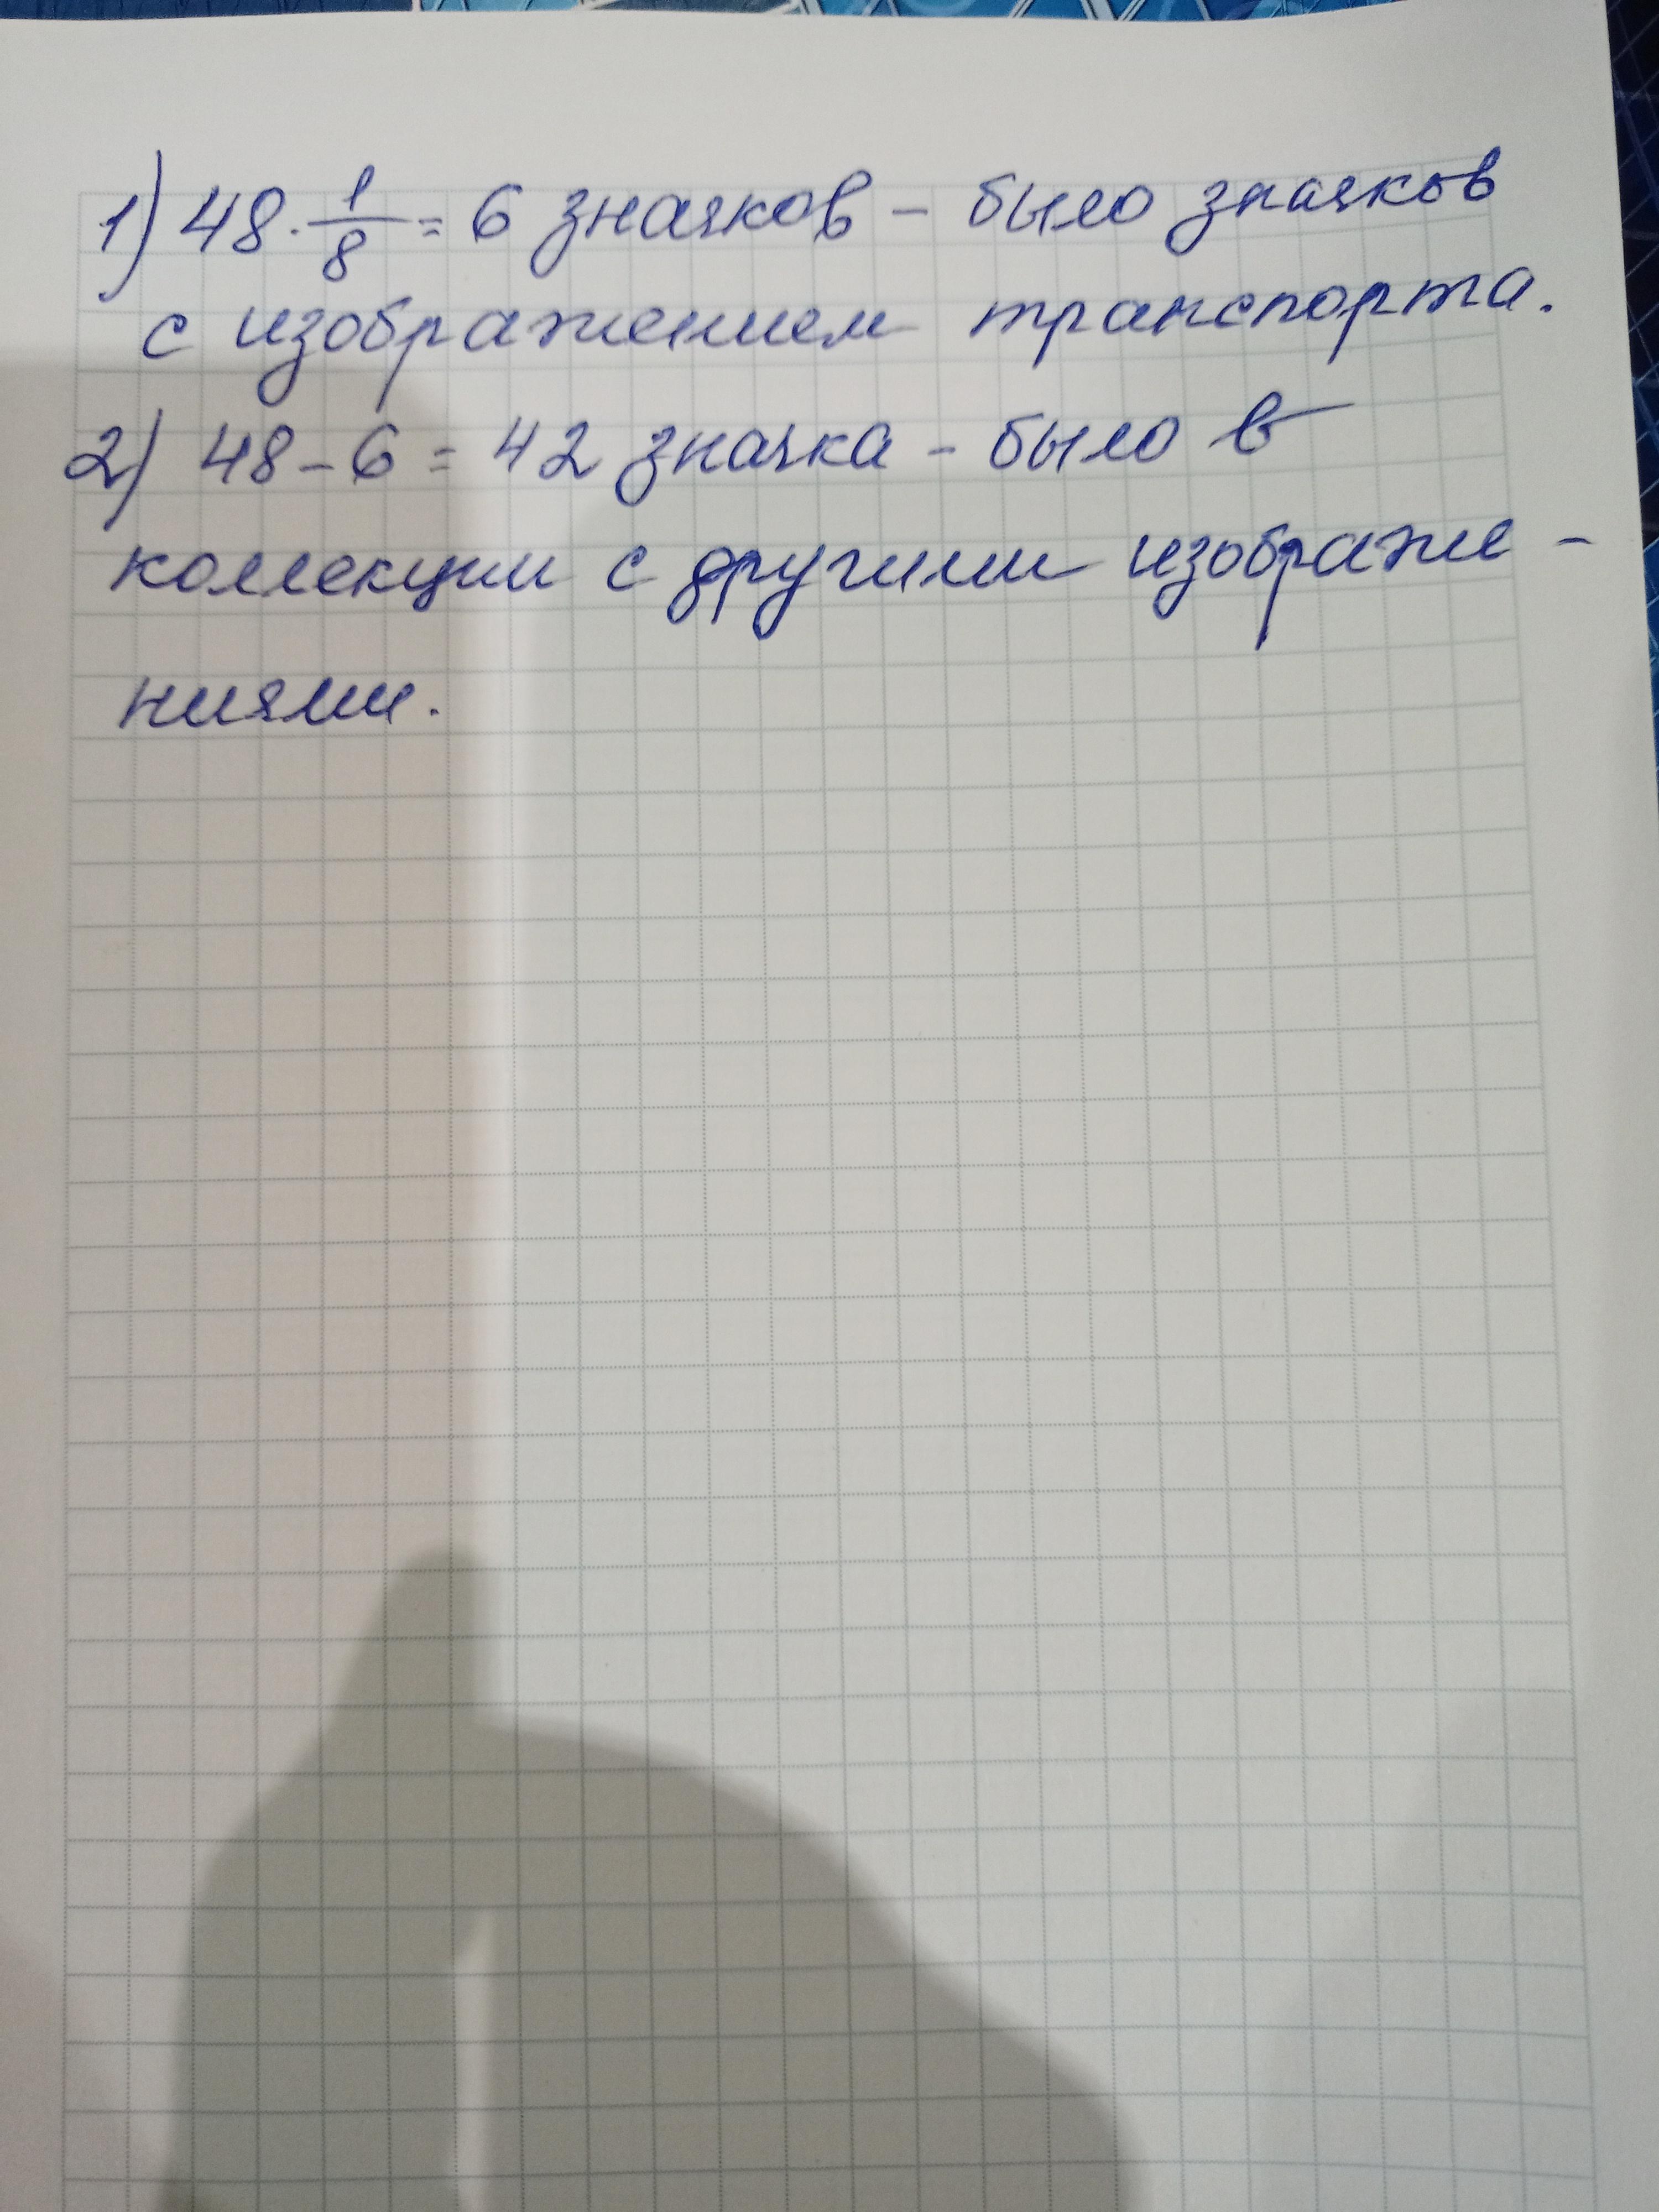 1) 48 · 1/8 = 6 значков - было значков
с изображением транспорта.
2) 48 - 6 = 42 значка - было в
коллекции с другими изображе -
ниями.